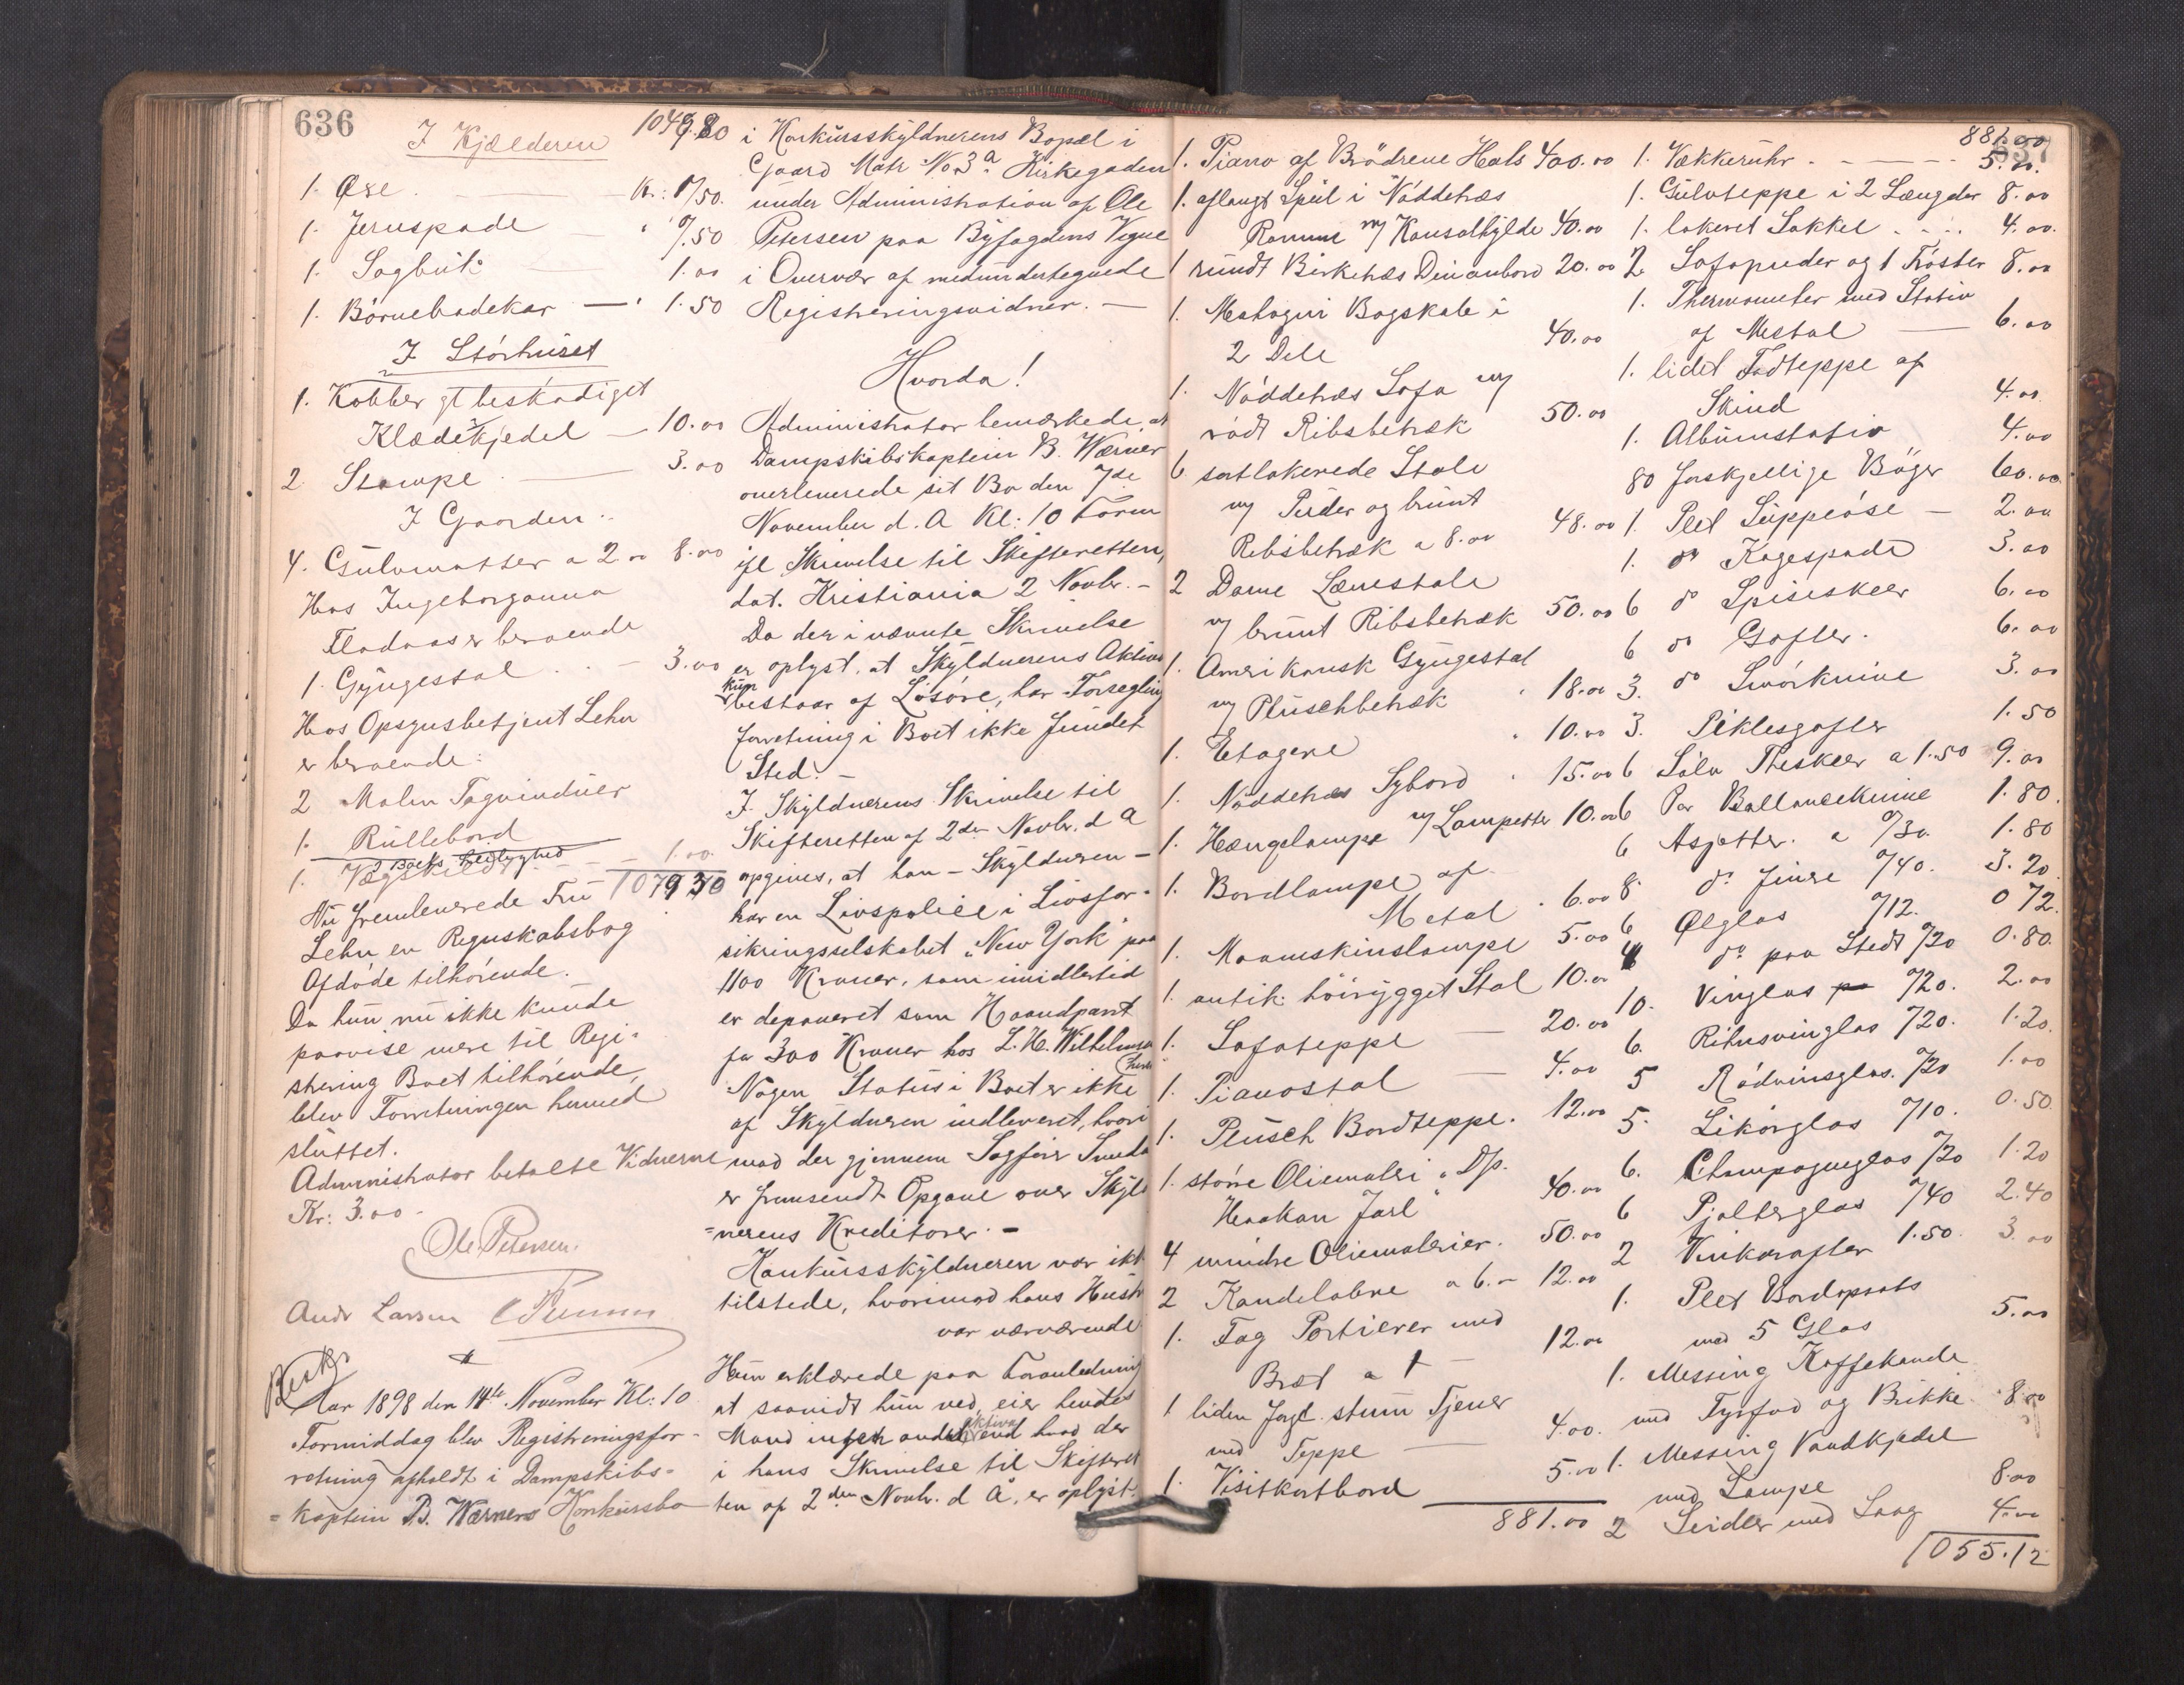 636
I Kjælderen 1049.80
1. Øxe Kr: 0/50.
1. Jernspade " 0/.50
1. Sagbuk 1.00
1. Börnebadekar — " 1.50
I Störhuset
1. Kobber gl beskadiget
Klædekjedel — 10.00
2 Stampe 3.00
I Gaarden.
4. Gulvmatter a 2.00 8.00
Hos Ingeborganna
Fladaas er beroende
1 Gyngestol — 3.00
Hos Opsynsbetjent Lehn
er beroende:
2 Malen Fagvinduer
1. Rullebord
2 Boets Ledighed
1. Vægskilderi — 1.00
107930
Nu fremleverede Fru
Lehn en Regnskabsbog
Afdöde tilhörende.
Da hun nu ikke kunde
paavise mere til Regi-
strering Boet tilhörende,
blev Forretningen hermed
sluttet.
Administrator betalte Vidnerne
Kr: 3.00 -
Ole Petersen.
Andr Larsen
Aar 1898 den 14de November Kl: 10
Formiddag blev Registreringsfor-
retning afholdt i Dampskibs-
=kaptein B. Wærners Konkursbo
i Konkursskyldnerens Bopæl i
Gaard Matr No 3a Kirkegaden
under Administration af Ole
Petersen paa Byfogdens Vegne
i Overvær af medundertegnede
Registreringsvidner. —
Hvorda!
Administrator bemærkede, at
Dampskibskaptein B. Wærner
overleverede sit Bo den 7de
November d. A Kl: 10 Form
ifl Skrivelse til Skifteretten,
dat. Kristiania 2 Novbr. -
Da der i nævnte Skrivelse
er oplyst, at Skyldnerens Aktiva
kun
bestaar af Lösöre, har Forsegling
forretning i Boet ikke fundet
Sted. -
I Skyldnerens Skrivelse til
Skifteretten af 2den Novbr. d A
opgives, at han - Skyldneren -
har en Livspolice i Livsfor-
sikringsselskabet „New York" paa
1100 Kroner, som imidlertid
er deponeret som Haandpant
for 300 Kroner hos L. H. Wilhelmsen
Nogen Status i Boet er ikke
af Skyldneren indleveret, hvori
mod der gjennem Sagförer Smeda
er fremsendt Opgave over Skyld
=nerens Kreditorer. -
Konkursskyldneren var ikke
tilstede, hvorimod hans Hustr
var nærværende
Hun erklærede paa Foranledning
at saavidt hun ved, eier hendes
Aktiva
Mand ingen andet end hvad der
i hans Skrivelse til Skifteret
ten af 2den Novbr. d A. er oplyst.
1. Piano af Brödrene Hals 400.00
1. aflangt Speil i Nöddetræs
Ramme m/ Konsolhylde 40.00
1 rundt Birketræs Divanbord 20.00
1. Mahogni Bogskab i
2 Dele 40.00
1. Nöddetræs Sofa m/
rödt Ribsbetræk 50.00
6 sortlakerede Stole
m/ Puder og brunt
Ribsbetræk a 8.00 48.00
2 Dame Lænestole
m/ brunt Ribsbetræk 50.00
1. Amerikansk Gyngestol
m/ Pluschbetræk " 18.00
1. Etagere " 10.00
1. Nöddetræs Sybord " 15.00
1. Hængelampe m/ Lampetter 10.00
1. Bordlampe af
Metal " 6.00
1. Maaneskinslampe 5.00
1. antik höirygget Stol 10.00
1. Sofateppe — 20.00
1. Pianostol — 4.00
1. Plusch Bordteppe. 12.00
1. större Oliemaleri „D/s.
Haakon Jarl" 40.00
4 mindre Oliemalerier. 50.00
2 Kandelabre a 6.- 12.00
1. Fag Portierer med
Bræt a 1 — 12.00
1 liden forgl. stum Tjener
med Teppe — 4.00.
1. Visitkortbord 5.00
881.00
637
881.00
1. Vækkeruhr. - — 5.00.
1. Gulvteppe i 2 Længder 8.00
1. lakeret Sokkel . - . . 4.00.
2 Sofapuder og 1 Tröster 8.00
1. Thermometer med Stativ
af Mestal — 6.00
1. lidet Fodteppe af
Skind 4.00
1. Albumstativ 4.00
80 forskjellige Böger 60.00
1. Plet Suppeöse — 2.00
1. do Kagespade 3.00
6 do Spiseskeer 6.00
6 do Gafler. 6.00
3. do Smörknive 3.00
3. Piklesgafler 1.50
6 Sölv Theskeer a 1.50 9.00
6 Par Ballanceknive 1.80.
6 Asjetter. a 0/30. 1.80
8. do finere 0/40. 3.20
6 Ölglas 0/12. 0 72.
4 do paa Stedt 0/20 0.80.
10. Vinglas 0/20. 2.00
6. Rihnsvinglas 0/20. 1.20.
5 Rödvinsglas. 0/20 1.00
5. Likörglas 0/10. 0.50
6. Champagneglas 0/20 1.20
6 Pjolterglas 0/40 2.40
2 Vinkarafler 1.50. 3.00
1. Plet Bordopsats
med 5 Glas 5.00
1. Messing Kaffekande
med Fyrfad og Brikke 8.00
1. Messing Vandkjedel
med Lampe 8.00
2 Seidler med Laag 4.00
1055.12